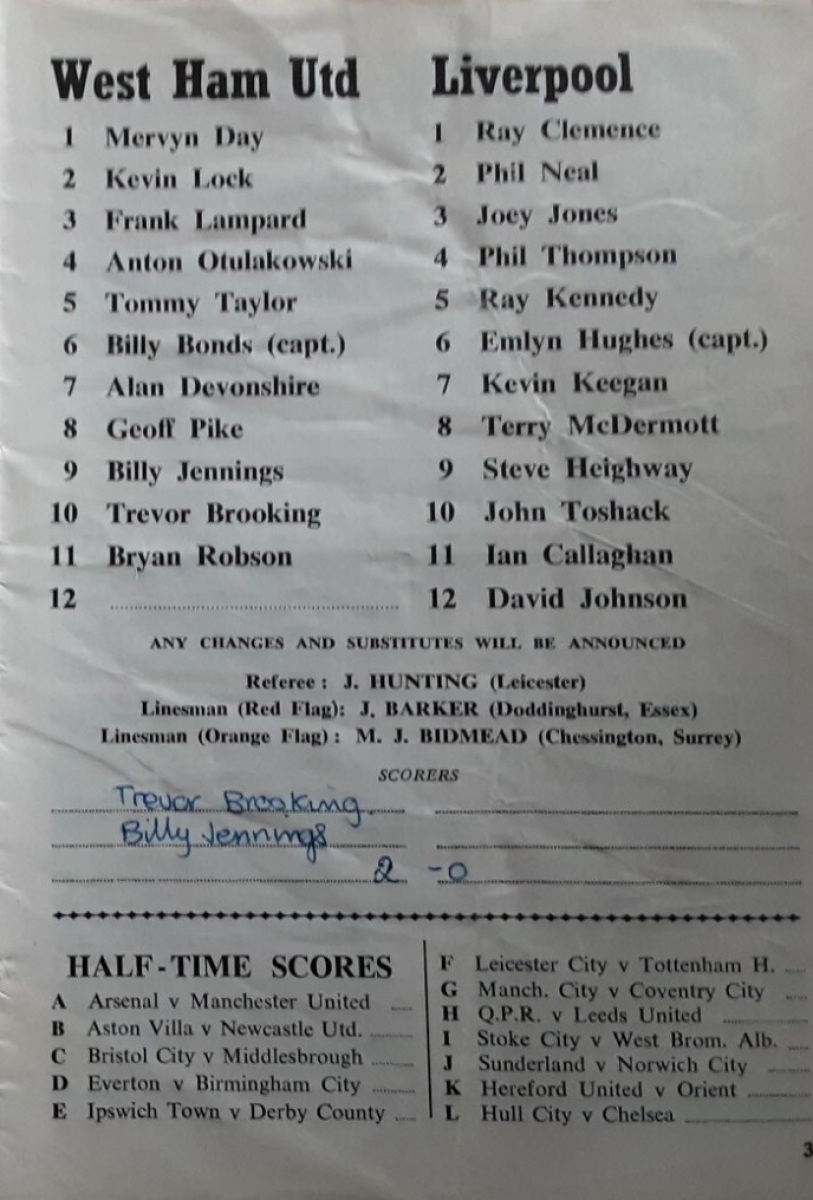 West Ham Utd
1 Mervyn Day
2 Kevin Lock
3 Frank Lampard
4 Anton Otulakowski
5 Tommy Taylor
6 Billy Bonds (capt.)
7 Alan Devonshire
8 Geoff Pike
9 Billy Jennings
10 Trevor Brooking
11 Bryan Robson
12
Liverpool
1 Ray Clemence
2 Phil Neal
3 Joey Jones
4 Phil Thompson
5 Ray Kennedy
6 Emlyn Hughes (capt.)
7 Kevin Keegan
8 Terry McDermott
9 Steve Heighway
10 John Toshack
11 Ian Callaghan
12 David Johnson
ANY CHANGES AND SUBSTITUTES WILL BE ANNOUNCED
Referee : J. HUNTING (Leicester)
Linesman (Red Flag): J. BARKER (Doddinghurst, Essex)
Linesman (Orange Flag) : M. J. BIDMEAD (Chessington, Surrey)
SCORERS
Trevor Brooking
Billy Jennings
2 - 0
HALF-TIME SCORES
A Arsenal v Manchester United
B Aston Villa v Newcastle Utd.
C Bristol City v Middlesbrough
D Everton v Birmingham City
E Ipswich Town v Derby County
F Leicester City v Tottenham H.
G Manch. City v Coventry City
H Q.P.R. v Leeds United
I Stoke City v West Brom. Alb.
J Sunderland v Norwich City
K Hereford United v Orient
L Hull City v Chelsea
3